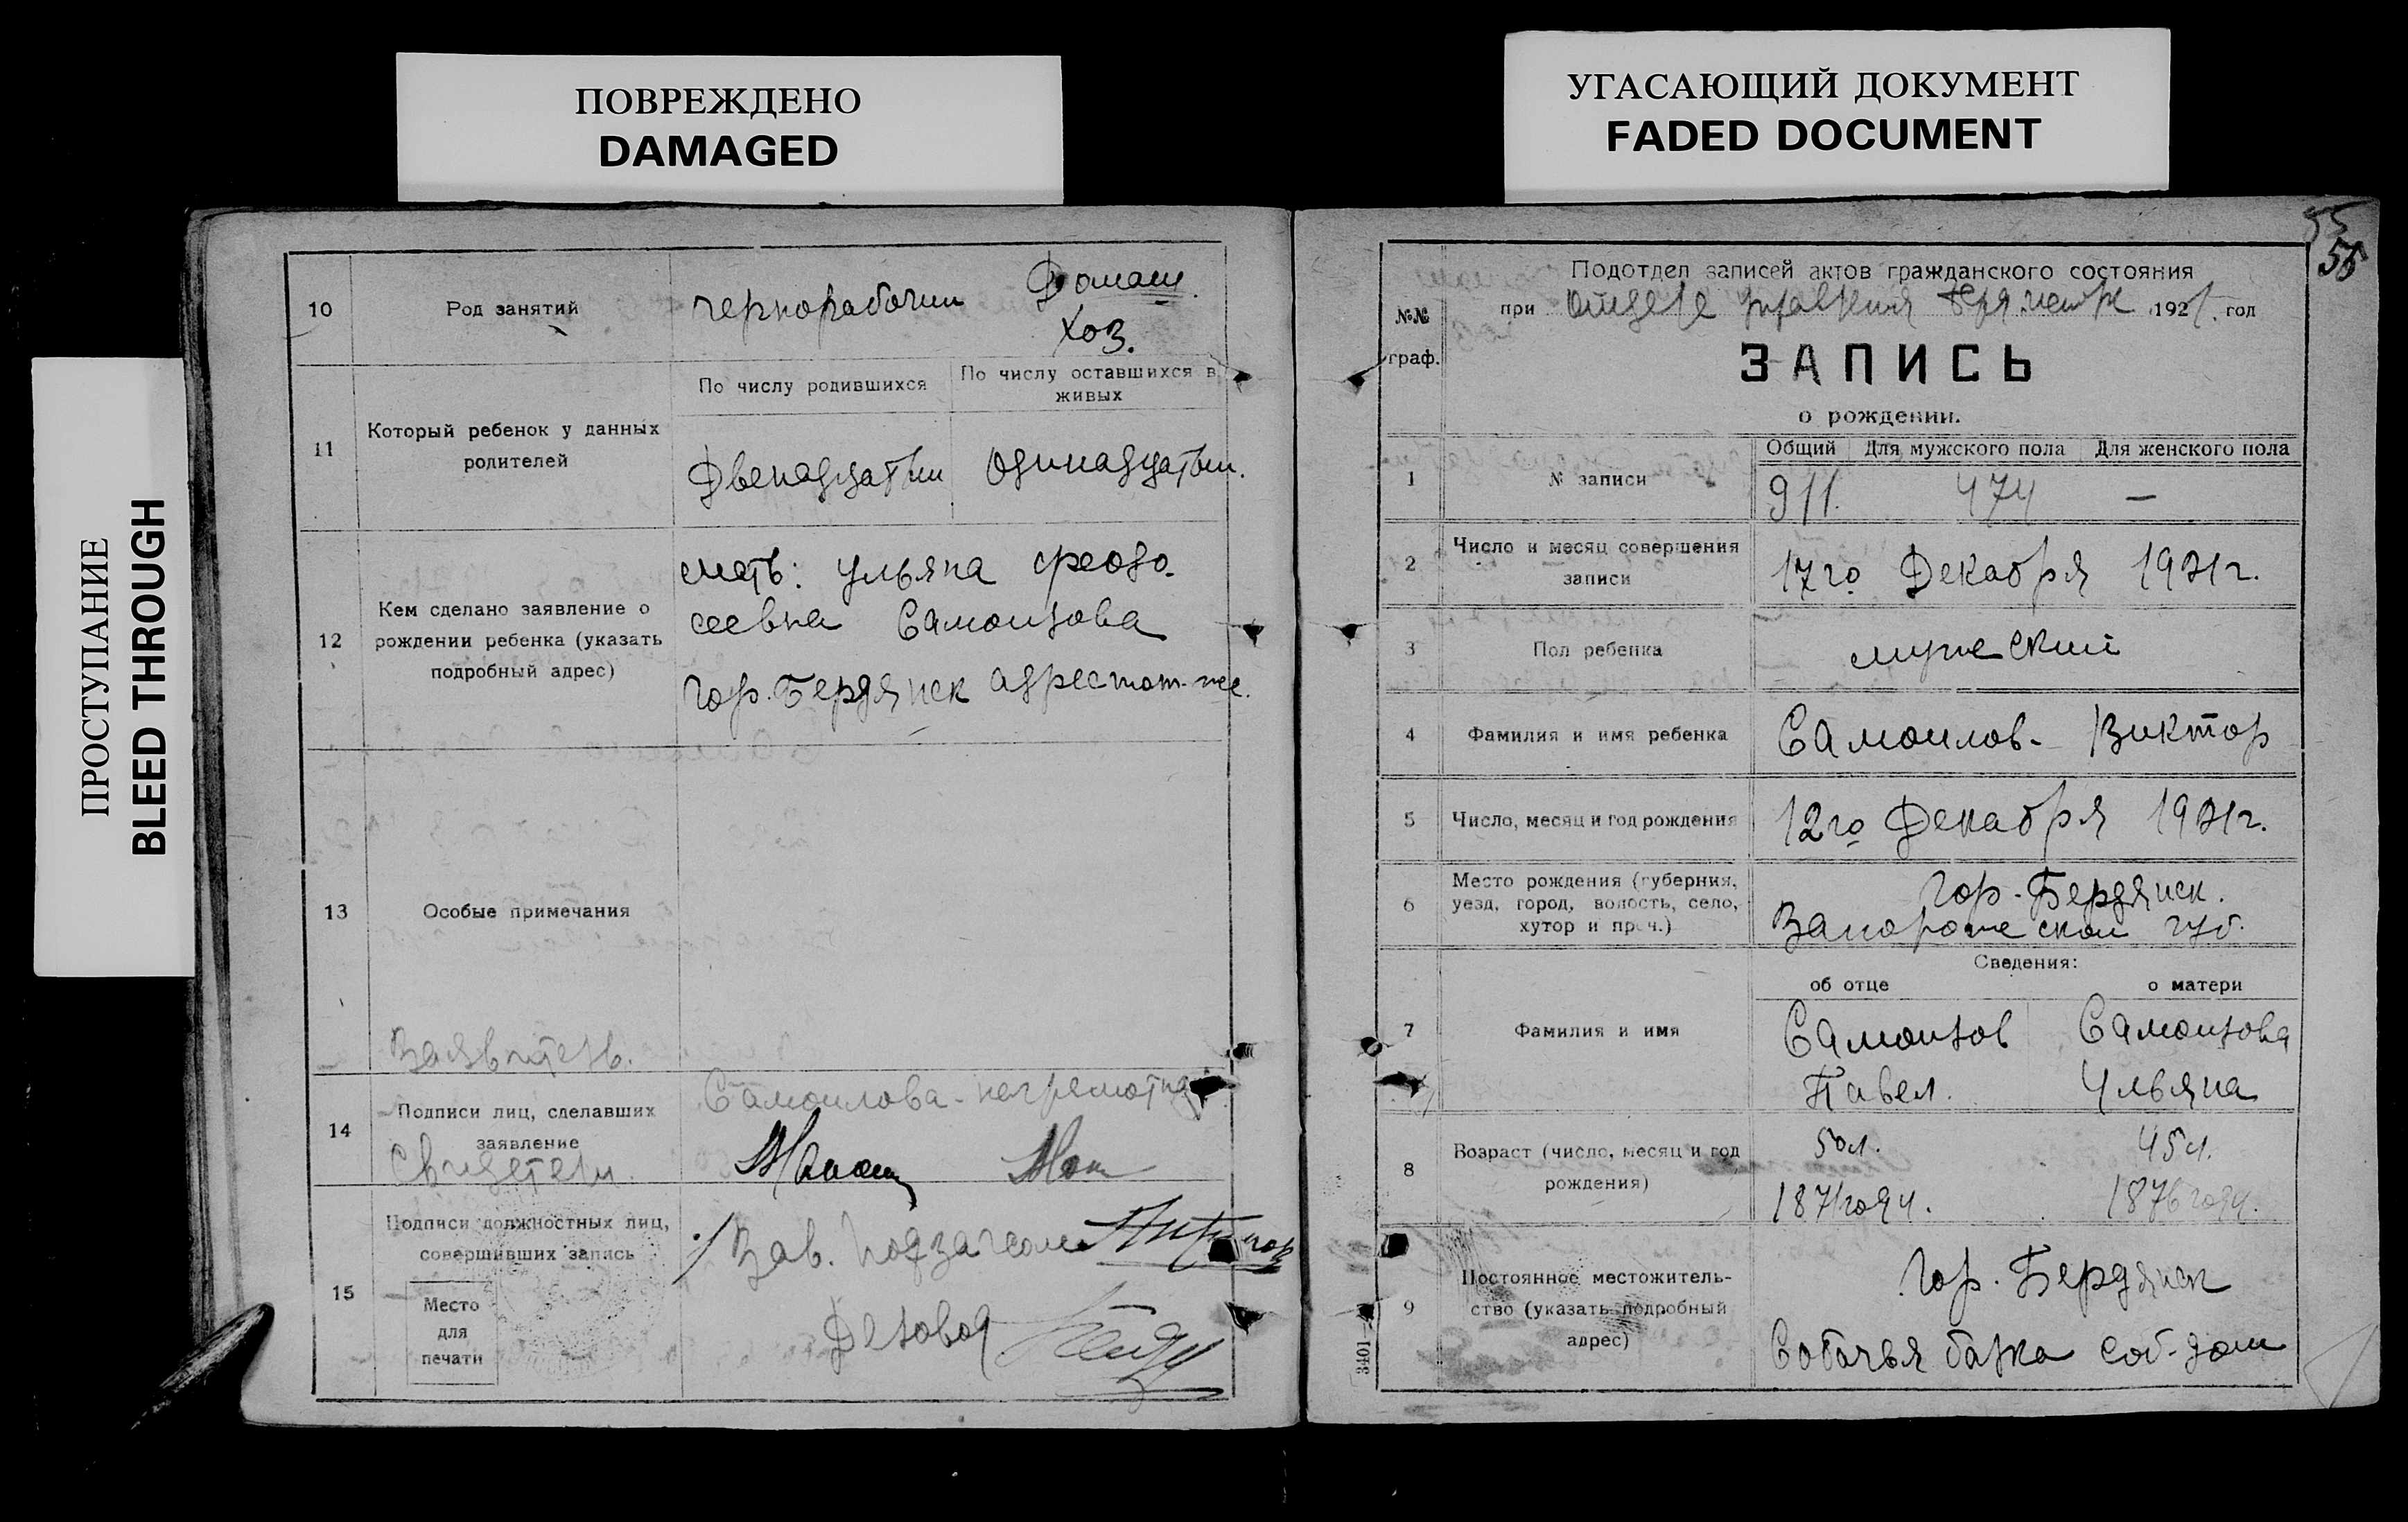 ПОВРЕЖДЕНО
DAMAGED
УГАСАЮЩИЙ ДОКУМЕНТ
FADED DOCUMENT
ПРОСТУПАНИЕ
BLEED THROUGH
10
Род занятий
чернорабочий
Домаш.
хоз.
11
Который ребенок у данных
родителей
По числу родившихся
По числу оставшихся в
живых
Двенадцатый
Одинадцатый.
12
Кем сделано заявление о
рождении ребенка (указать
подробный адрес)
мать: Ульяна Феодо-
сеевна Самойлова
гор. Бердянск адрес тот-же.
13
Особые примечания
Заявитель.
14
Подписи лиц, сделавших
заявление
Свидетели
Самоилова - неграмотная
15
Подписи должностных лиц,
совершивших запись
Место
для
печати
Зав. подзагсом
Деловод
55
№№
граф.
Подотдел записей актов гражданского состояния
при Отделе Управления 1921 год
ЗАПИСЬ
о рождении.
1
№ записи
Общий
Для мужского пола
Для женского пола
911.
474
—
2
Число и месяц совершения
записи
17го Декабря 1921г.
3
Пол ребенка
мужеский
4
Фамилия и имя ребенка
Самоилов - Виктор
5
Число, месяц и год рождения
12го Декабря 1921г.
6
Место рождения (губерния,
уезд, город, волость, село,
хутор и проч.)
Гор. Бердянск.
Запорожеской губ.
Сведения:
об отце
о матери
7
Фамилия и имя
Самоилов
Павел.
Самоилова
Ульяна
8
Возраст (число, месяц и год
рождения)
50л.
1871 году.
45л.
1876 году.
9
Постоянное местожитель-
ство (указать подробный
адрес)
Гор. Бердянск
Собачья балка соб. дом
3401